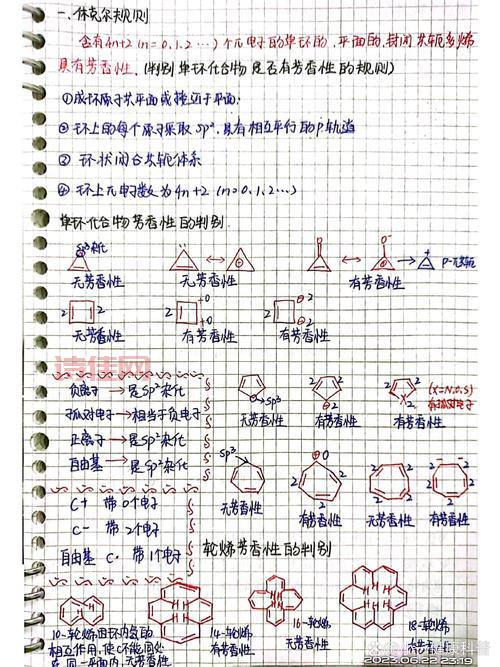 一.休克尔规则
含有4n+2(n=0.1.2…)个π电子的单环的,平面的,封闭共轭多烯
具有芳香性.(判别单环化合物是否有芳香性的规则)
①成环原子共平面或接近于平面;
②环上的每个原子采取sp²,具有相互平行的p轨道
③环状闭合共轭体系
④环上π电子数为4n+2(n=0.1.2…)
单环化合物芳香性的判别.
sp³杂化
无芳香性 无芳香性 有芳香性
2 2 2 +0 +0 2
无芳香性 有芳香性 有芳香性
诗佳网
负离子→是sp²杂化
孤对电子→相当于负电子
正离子→是sp²杂化
自由基→是sp²杂化
sp³ 2 2 2 2 2 (X=N.O.S)
无芳香性 有芳香性 有芳香性
C+ 带0个电子
C- 带2个电子
自由基 C· 带1个电子
sp³
无芳香性 有芳香性 无芳香性 有芳香性
轮烯芳香性的判别
H H H H H H
10-轮烯因环内氢的 14-轮烯 16-轮烯 18-轮烯
相互作用,使C不能同处 有芳香性 无芳香性
在同一平面内,无芳香性
2023.06.22 23:19